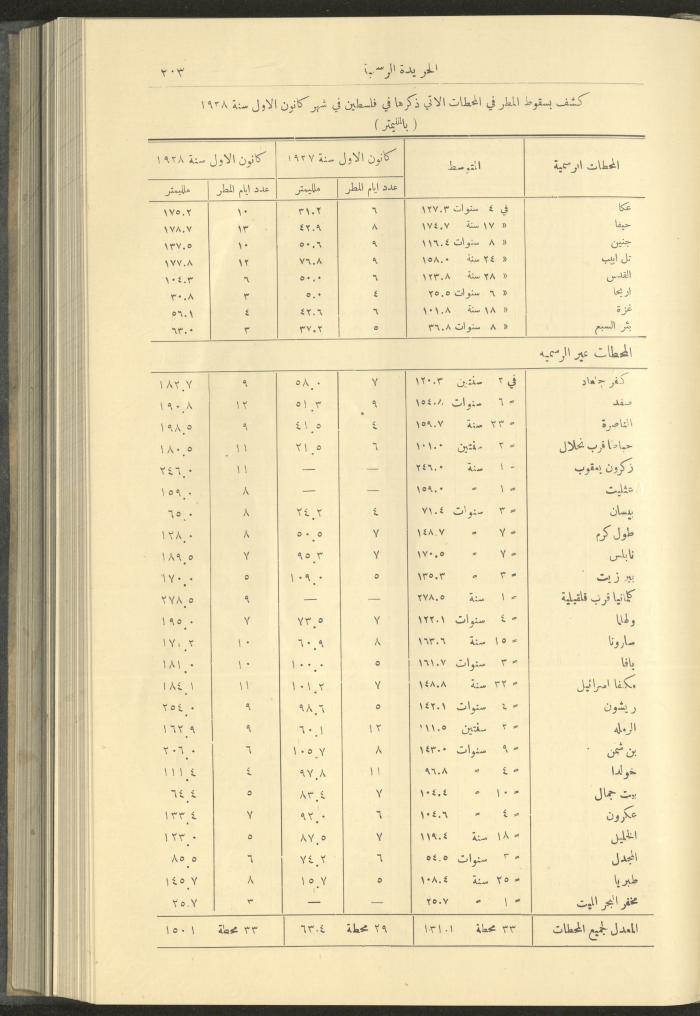 الجريدة الرسمية ٢٠٣
كشف بسقوط المطر في المحطات الاتي ذكرها في فلسطين في شهر كانون الاول سنة ١٩٣٨
( بالمليمتر )
المحطات الرسمية المتوسط كانون الاول سنة ١٩٣٧ كانون الاول سنة ١٩٣٨
عدد ايام المطر مليمتر عدد ايام المطر مليمتر
عكا في ٤ سنوات ١٢٧.٣ ٦ ٣١.٢ ١٠ ١٧٥.٢
حيفا » ١٧ سنة ١٧٤.٧ ٨ ٤٢.٩ ١٣ ١٧٨.٧
جنين » ٨ سنوات ١١٦.٤ ٩ ٥٠.٦ ١٠ ١٣٧.٥
تل ابيب » ٢٤ سنة ١٥٨.٠ ٩ ٧٦.٨ ١٢ ١٧٧.٨
القدس » ٢٨ سنة ١٢٣.٨ ٦ ٥٠.٠ ٦ ١٠٤.٣
اريحا » ٦ سنوات ٢٥.٥ ٤ ٥.٠ ٣ ٣٠.٨
غزة » ١٨ سنة ١٠١.٨ ٦ ٤٢.٦ ٤ ٥٦.١
بئر السبع » ٨ سنوات ٣٦.٨ ٥ ٣٧.٢ ٣ ٦٣.٠
المحطات غير الرسميه
كفر جلعاد في ٢ سنتين ١٢٠.٣ ٧ ٥٨.٠ ٩ ١٨٢.٧
صفد " ٦ سنوات ٩ ٥١.٣ ١٢ ١٩٠.٨
الناصرة " ٢٣ سنة ١٥٩.٧ ٤ ٤١.٥ ٩ ١٩٨.٥
قرب نحلال " ٢ سنتين ١٠١.٠ ٦ ٢١.٥ ١١ ١٨٠.٥
زكرون يعقوب " ١ سنة ٢٤٦.٠ — — ١١ ٢٤٦.٠
عثليت " ١ " ١٥٩.٠ — — ٨ ١٥٩.٠
بيسان " ٣ سنوات ٧١.٤ ٤ ٢٤.٢ ٨ ٦٥.٠
طول كرم " ٧ " ١٤٨.٧ ٧ ٥٠.٥ ٨ ١٢٨.٠
نابلس " ٧ " ١٧٠.٥ ٧ ٩٥.٣ ٧ ١٨٩.٥
بير زيت " ٣ " ١٣٥.٣ ٥ ١٠٩.٠ ٥ ١٧٠.٠
كمانيا قرب قلقيلية " ١ سنة ٢٧٨.٥ — — ٩ ٢٧٨.٥
ولهلما " ٤ سنوات ١٢٢.١ ٧ ٧٣.٥ ٧ ١٩٥.٠
سارونا " ١٥ سنة ١٦٣.٦ ٨ ٦٠.٩ ١٠ ١٧١.٢
يافا " ٣ سنوات ١٦١.٧ ٥ ١٠٠.٠ ١٠ ١٨١.٠
مكفا اسرائيل " ٣٢ سنة ١٤٨.٨ ٧ ١٠١.٢ ١١ ١٨٤.١
ريشون " ٤ سنوات ١٤٢.١ ٥ ٩٨.٦ ٩ ٢٥٤.٠
الرمله " ٢ سنتين ١١١.٥ ١٢ ٦٠.١ ٩ ١٦٢.٩
بن شمن " ٩ سنوات ١٤٣.٠ ٨ ١٠٥.٧ ٦ ٢٠٦.٠
خولدا " ٤ " ٩٦.٨ ١١ ٩٧.٨ ٤ ١١١.٤
بيت جمال " ١٠ " ١٠٤.٤ ٧ ٨٣.٤ ٥ ٦٤.٤
عكرون " ٤ " ١٠٤.٦ ٦ ٩٢.٠ ٧ ١٣٣.٤
الخليل " ١٨ سنة ١١٩.٤ ٧ ٨٧.٥ ٥ ١٢٣.٠
المجدل " ٣ سنوات ٥٤.٥ ٦ ٧٤.٢ ٦ ٨٥.٥
طبريا " ٢٥ سنة ١٠٨.٤ ٥ ١٥.٧ ٨ ١٤٥.٧
مخفر البحر الميت " ١ " ٢٥.٧ — — ٣ ٢٥.٧
المعدل لجميع المحطات ٣٣ محطة ١٣١.١ ٢٩ محطة ٦٣.٤ ٣٣ محطة ١٥٠.١